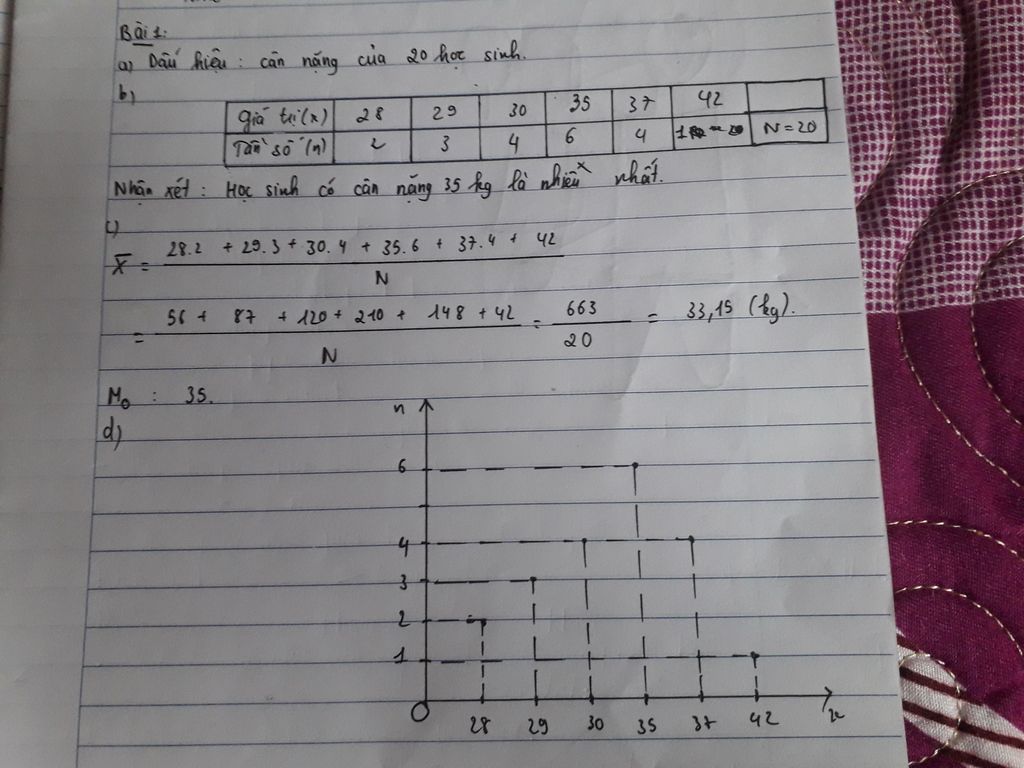 Bài 1:
a) Dấu hiệu : cân nặng của 20 học sinh.
b)
Giá trị (x) 28 29 30 35 37 42
Tần số (n) 2 3 4 6 4 1 N = 20
Nhận xét : Học sinh có cân nặng 35 kg là nhiều nhất.
c)
X̄ = 28.2 + 29.3 + 30.4 + 35.6 + 37.4 + 42
N
= 56 + 87 + 120 + 210 + 148 + 42 = 663 = 33,15 (kg).
N 20
M₀ : 35.
d)
n
6
4
3
2
1
O 28 29 30 35 37 42 x